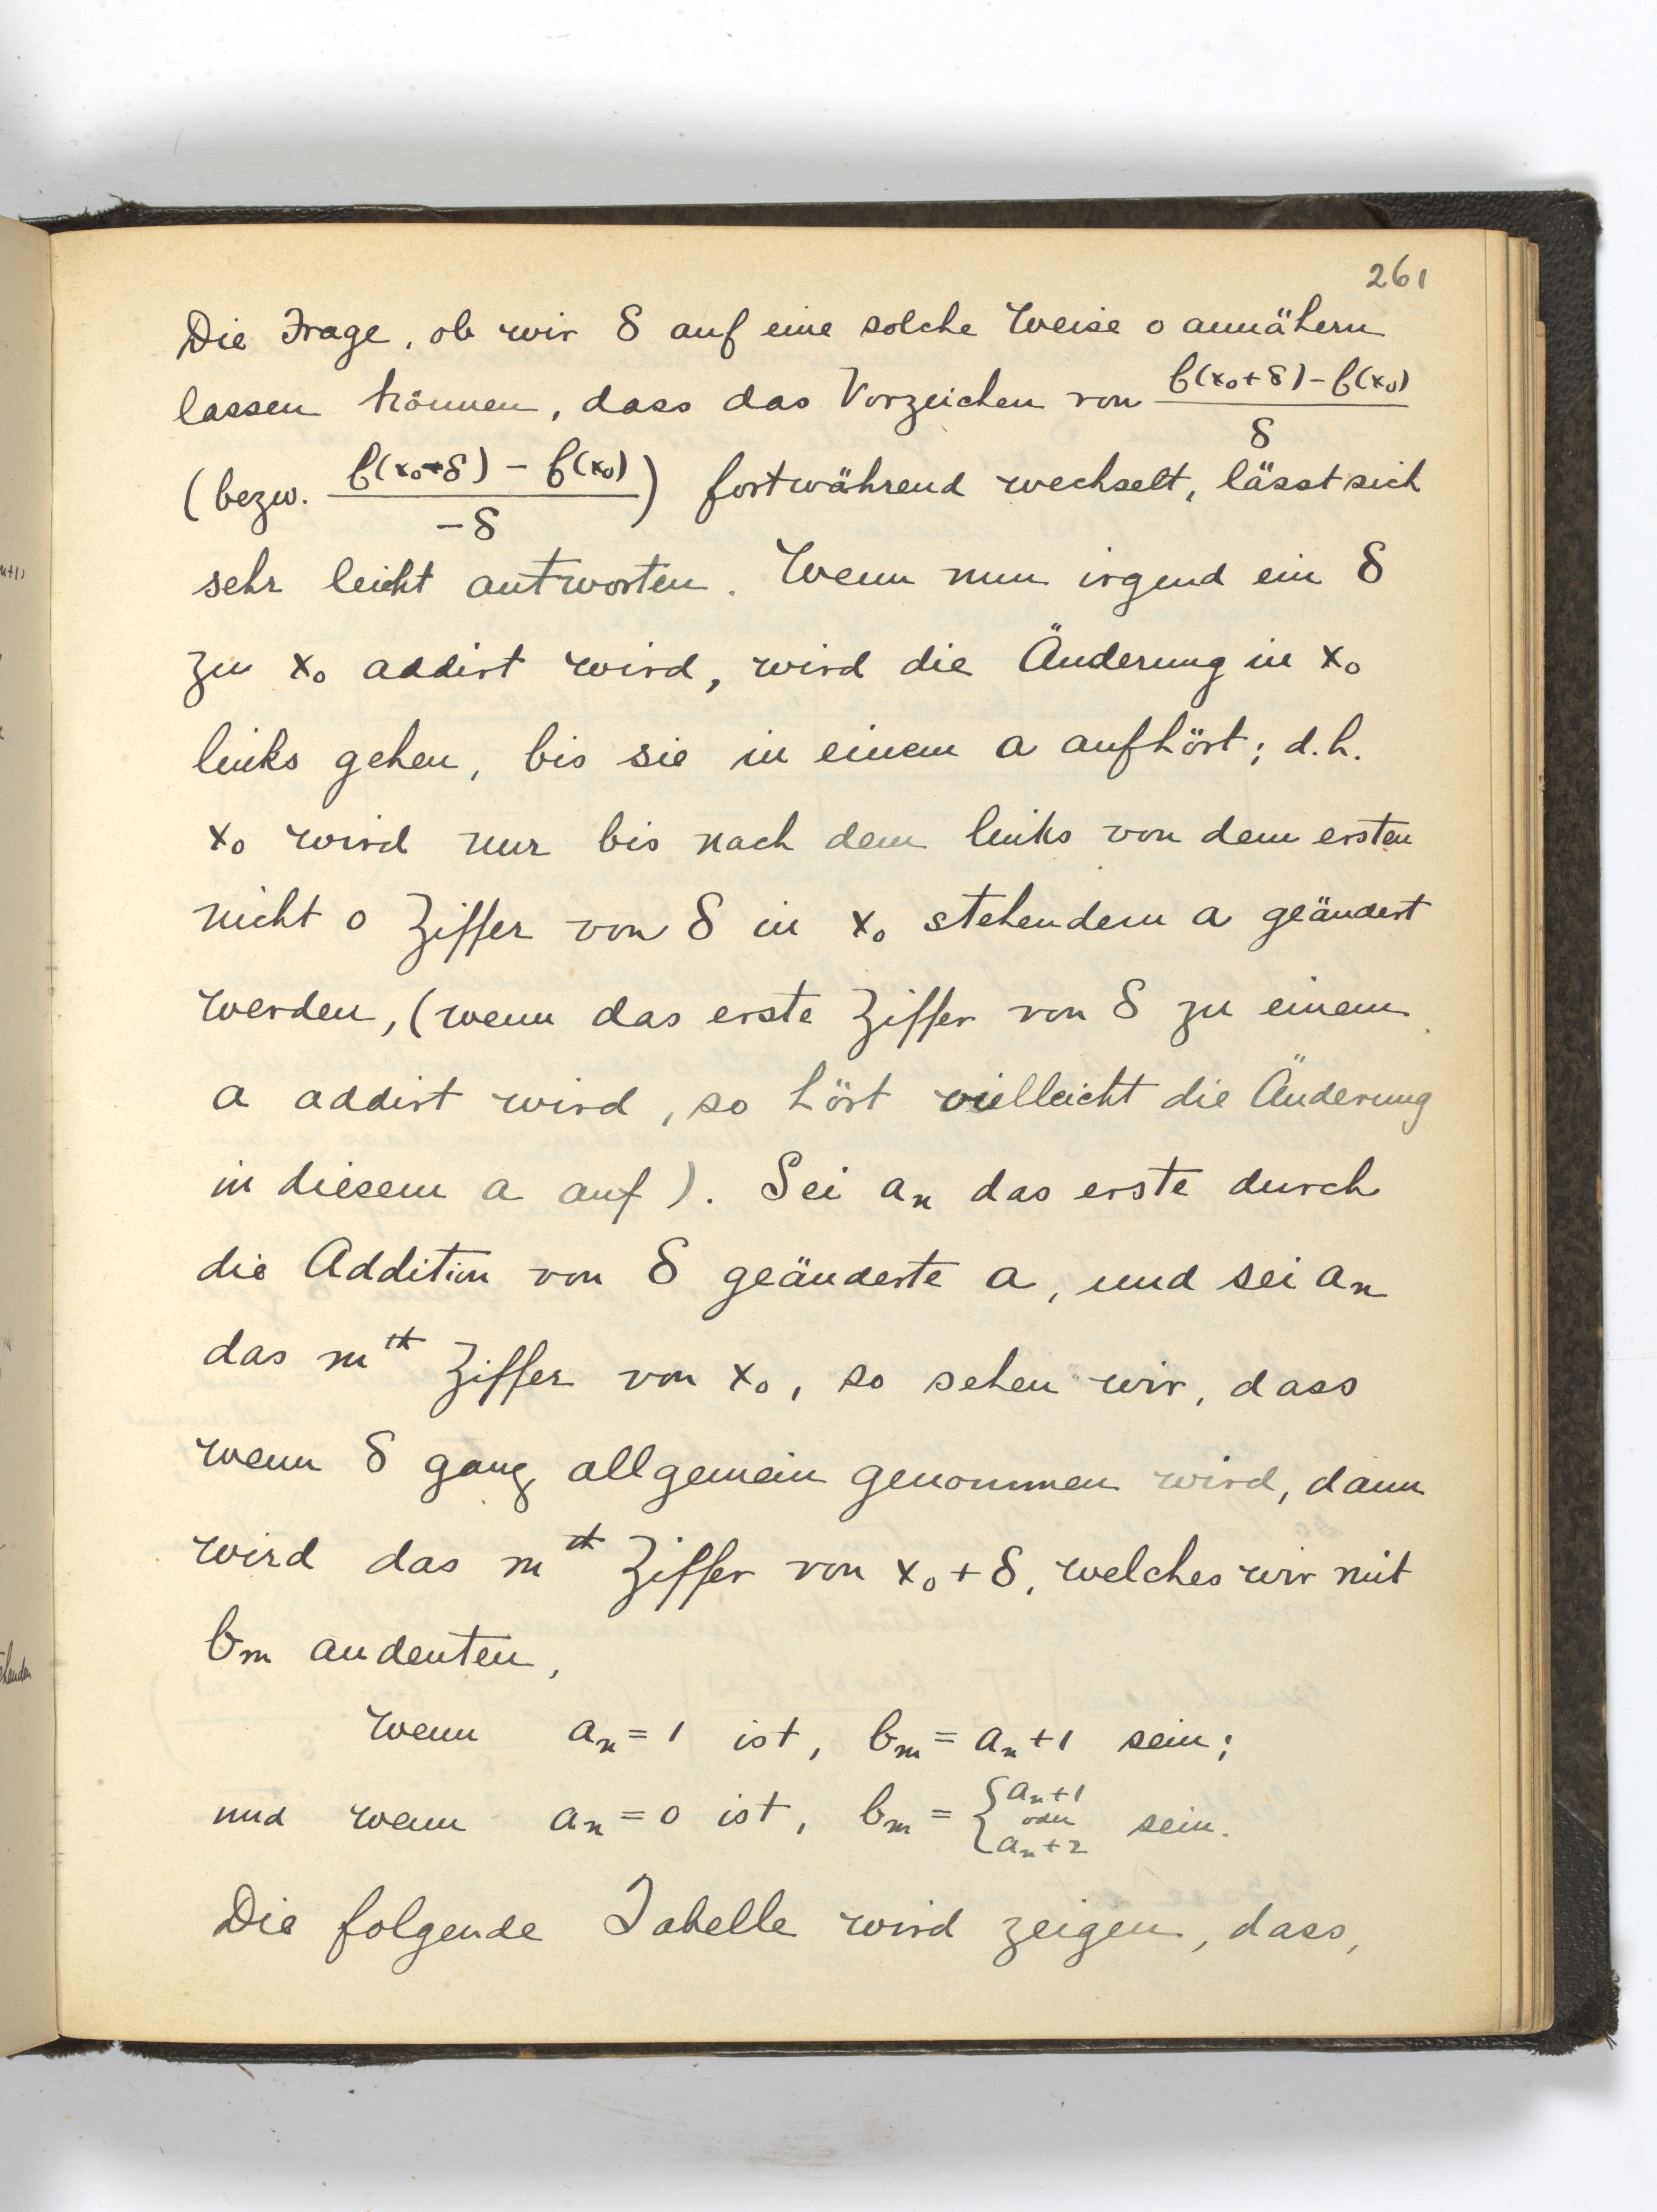 261
Die Frage, ob wir δ auf eine solche Weise 0 annähern
lassen können, dass das Vorzeichen von (f(x₀+δ)−f(x₀))/δ
(bezw. (f(x₀−δ)−f(x₀))/−δ) fortwährend wechselt, lässt sich
sehr leicht antworten. Wenn nun irgend ein δ
zu x₀ addirt wird, wird die Änderung in x₀
links gehen, bis sie in einem a aufhört; d.h.
x₀ wird nur bis nach dem links von dem ersten
nicht 0 Ziffer von δ in x₀ stehendem a geändert
werden, (wenn das erste Ziffer von δ zu einem
a addirt wird, so hört vielleicht die Änderung
in diesem a auf). Sei aₙ das erste durch
die Addition von δ geänderte a, und sei aₙ
das m^th Ziffer von x₀, so sehen wir, dass
wenn δ ganz allgemein genommen wird, dann
wird das m^th Ziffer von x₀+δ, welches wir mit
bₘ andeuten,
wenn aₙ=1 ist, bₘ=aₙ+1 sein;
und wenn aₙ=0 ist, bₘ={aₙ+1 oder aₙ+2 sein.
Die folgende Tabelle wird zeigen, dass,